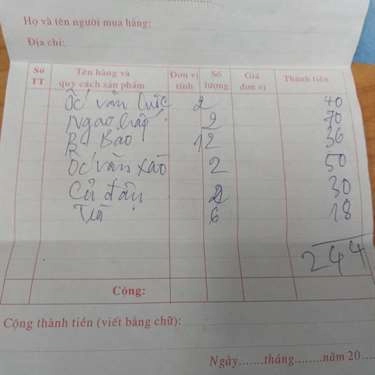 Họ và tên người mua hàng:
Địa chỉ:
Số TT Tên hàng và quy cách sản phẩm Đơn vị tính Số lượng Giá đơn vị Thành tiền
Ốc vặn luộc 2 40
Ngao hấp 2 70
Bò Bao 12 36
Ốc vặn xào 2 50
Củ đậu 2 30
Trà 6 18
244
Cộng:
Cộng thành tiền (viết bằng chữ):
Ngày.......tháng........năm 20....